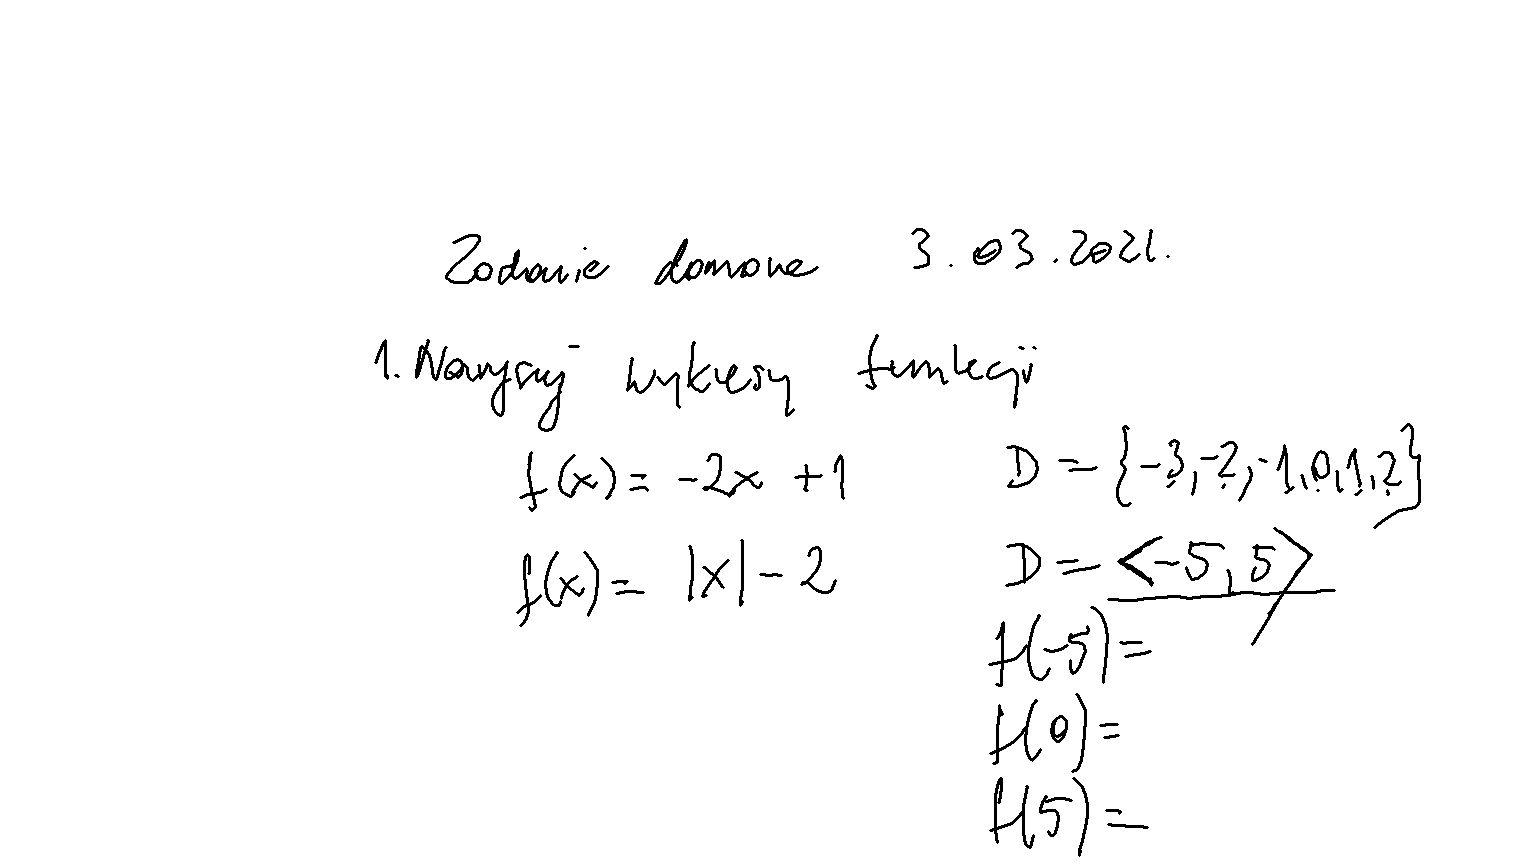 Zadanie domowe 3.03.2021.
1. Narysuj wykresy funkcji
f(x) = -2x + 1 D = {-3, -2, -1, 0, 1, 2}
f(x) = |x| - 2 D = <-5, 5>
f(-5) =
f(0) =
f(5) =